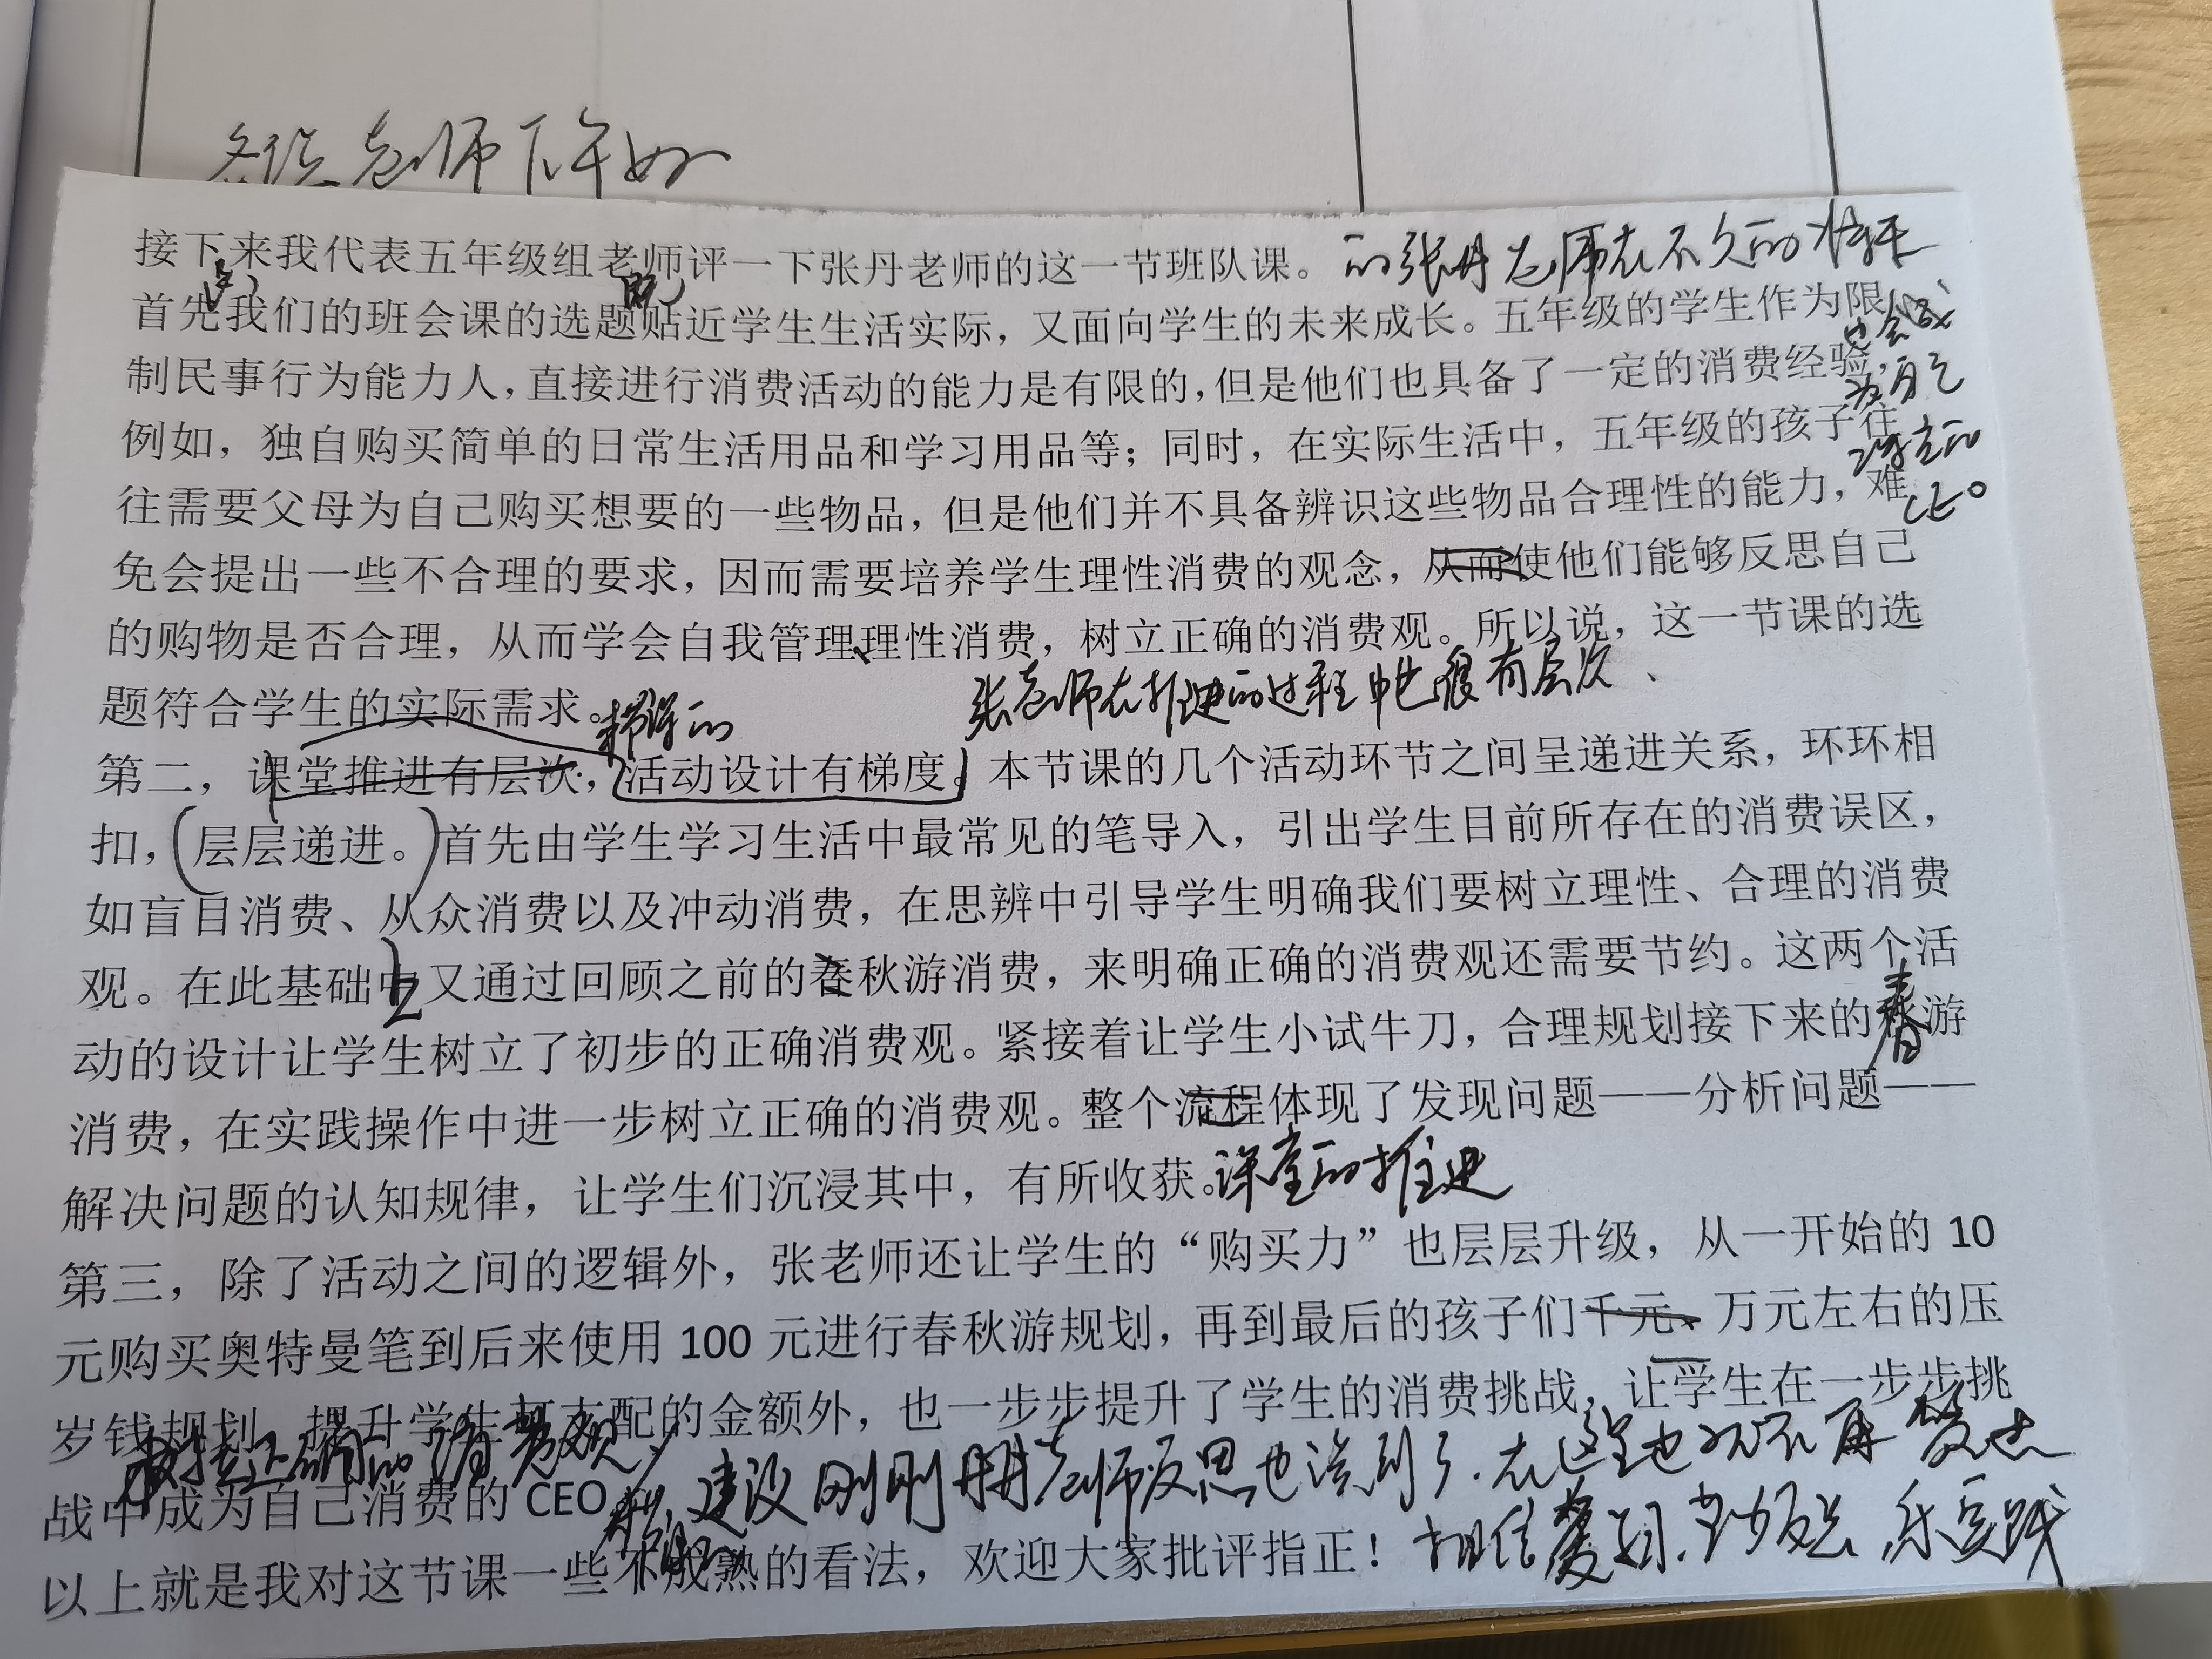 各位老师下午好
接下来我代表五年级组老师评一下张丹老师的这一节班队课。
的张丹老师在不久的将来
首先我们的班会课的选题贴近学生生活实际，又面向学生的未来成长。五年级的学生作为限
也会成
制民事行为能力人，直接进行消费活动的能力是有限的，但是他们也具备了一定的消费经验，
为自己
例如，独自购买简单的日常生活用品和学习用品等；同时，在实际生活中，五年级的孩子往
往需要父母为自己购买想要的一些物品，但是他们并不具备辨识这些物品合理性的能力，难
免会提出一些不合理的要求，因而需要培养学生理性消费的观念，从而使他们能够反思自己
的购物是否合理，从而学会自我管理、理性消费，树立正确的消费观。所以说，这一节课的选
题符合学生的实际需求。
张老师在推进的过程中也很有层次、
第二，课堂推进有层次，活动设计有梯度。本节课的几个活动环节之间呈递进关系，环环相
扣，（层层递进。）首先由学生学习生活中最常见的笔导入，引出学生目前所存在的消费误区，
如盲目消费、从众消费以及冲动消费，在思辨中引导学生明确我们要树立理性、合理的消费
观。在此基础上又通过回顾之前的春秋游消费，来明确正确的消费观还需要节约。这两个活
动的设计让学生树立了初步的正确消费观。紧接着让学生小试牛刀，合理规划接下来的春游
消费，在实践操作中进一步树立正确的消费观。整个流程体现了发现问题——分析问题——
课堂的推进
解决问题的认知规律，让学生们沉浸其中，有所收获。
第三，除了活动之间的逻辑外，张老师还让学生的“购买力”也层层升级，从一开始的 10
元购买奥特曼笔到后来使用 100 元进行春秋游规划，再到最后的孩子们千元、万元左右的压
岁钱规划，提升学生可支配的金额外，也一步步提升了学生的消费挑战，让学生在一步步挑
树立正确的消费观
战中成为自己消费的 CEO
建议刚刚丹丹老师反思也谈到了.在这里也就不再赘述
以上就是我对这节课一些不成熟的看法，欢迎大家批评指正！
相信